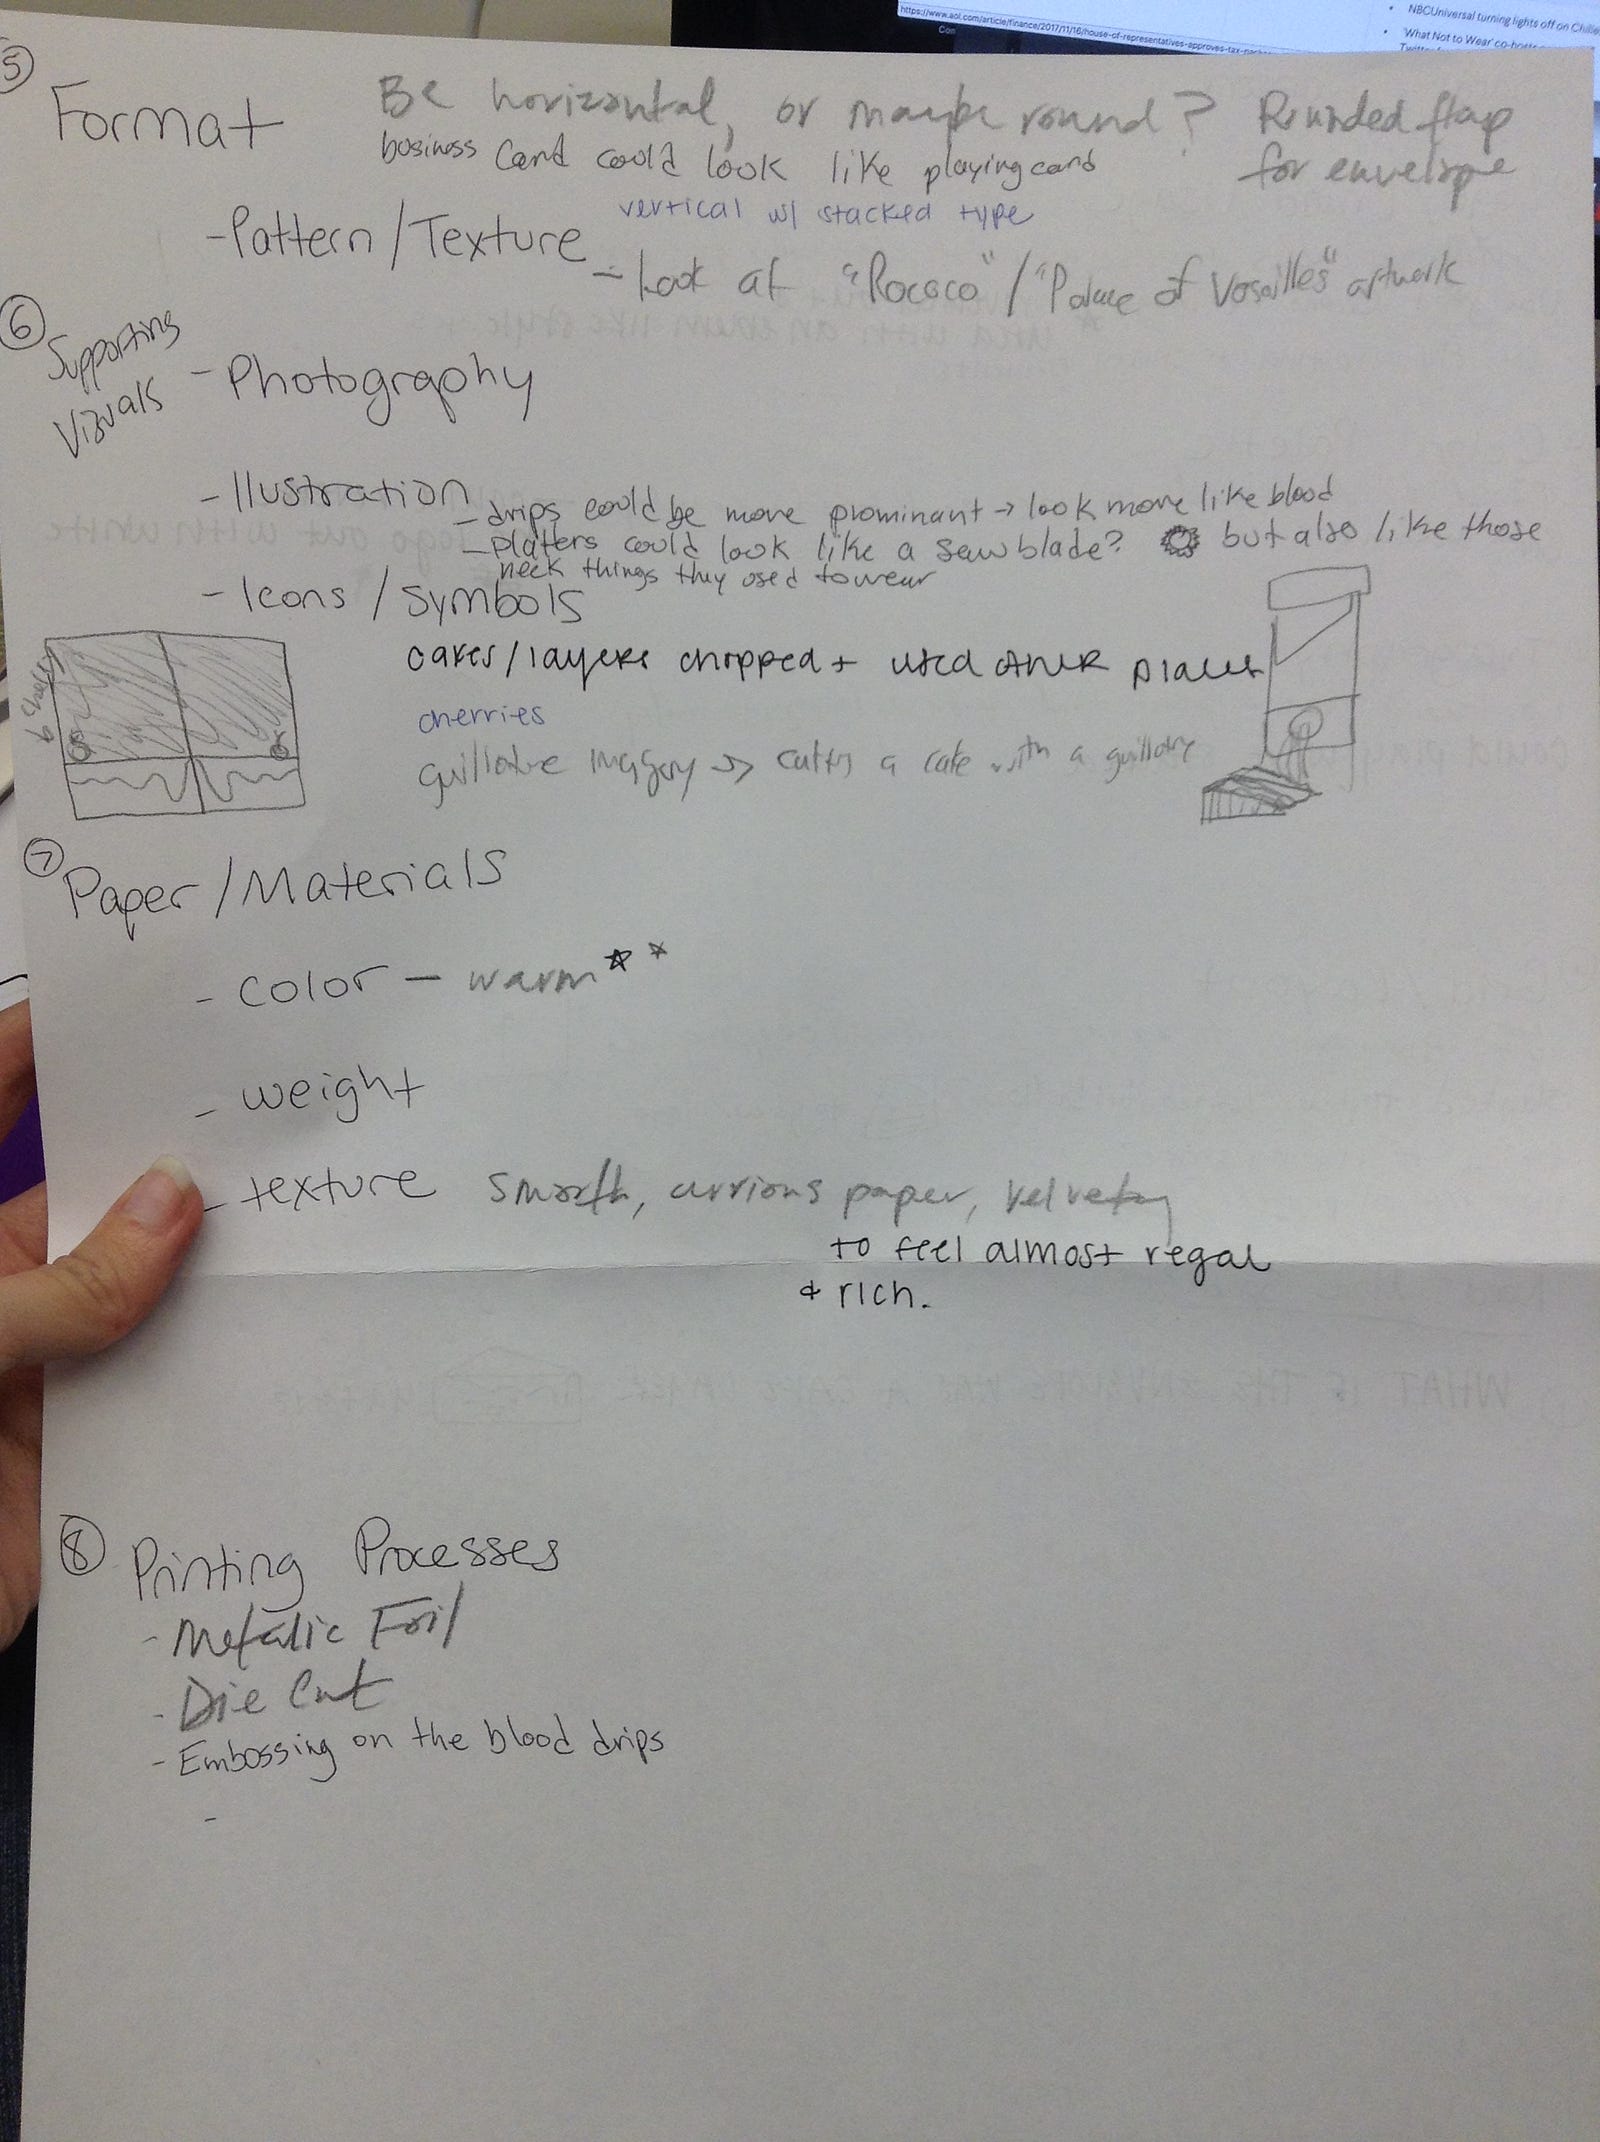 https://www.aol.com/article/finance/2017/11/16/house-of-representatives-approves-tax-
NBCUniversal turning lights off on
'What Not to Wear'
5
Format
Be horizontal, or maybe round? Rounded flap
for envelope
business card could look like playing card
vertical w/ stacked type
- Pattern/Texture
- Look at "Rococo" / "Palace of Versailles" artwork
6
Supporting
Vizuals
- Photography
- Illustration
- drips could be more prominant → look more like blood
- platters could look like a saw blade? but also like those
neck things they used to wear
- Icons/Symbols
cakes/layers chopped + used other places
cherries
guillotine imagery → cutting a cake with a guillotine
7
Paper/Materials
- color - warm
- weight
- texture smooth, currious paper, velvety
to feel almost regal
& rich.
8
Printing Processes
- Metalic Foil
- Die Cut
- Embossing on the blood drips
-